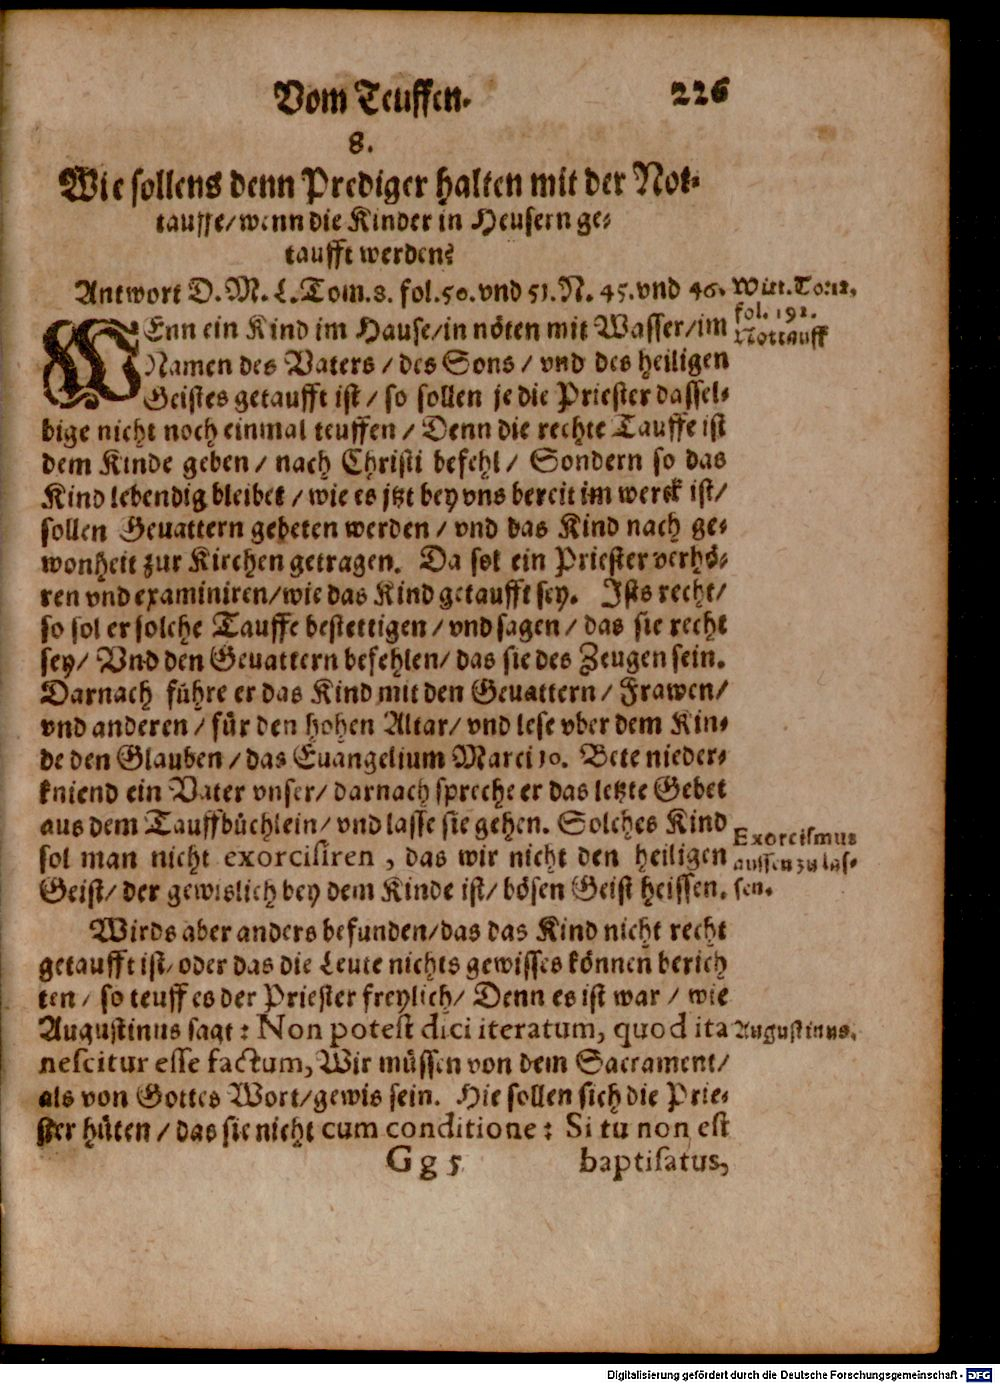 Vom Teuffen.
226
8.
Wie sollens denn Prediger halten mit der Not-
tauffe/wenn die Kinder in Heusern ge-
taufft werden?
Antwort D. M. L. Tom. 8. fol. 50. vnd 51. N. 45. vnd 46.
Witt. To. 12.
fol. 192.
Nottauff
WEnn ein Kind im Hause/in nöten mit Wasser/im
Namen des Vaters / des Sons / vnd des heiligen
Geistes getaufft ist / so sollen je die Priester dassel-
bige nicht noch einmal teuffen / Denn die rechte Tauffe ist
dem Kinde geben / nach Christi befehl / Sondern so das
Kind lebendig bleibet / wie es jtzt bey vns bereit im werck ist/
sollen Geuattern gebeten werden / vnd das Kind nach ge-
wonheit zur Kirchen getragen. Da sol ein Priester verhö-
ren vnd examiniren/wie das Kind getaufft sey. Ists recht/
so sol er solche Tauffe bestettigen / vnd sagen / das sie recht
sey/ Vnd den Geuattern befehlen/ das sie des Zeugen sein.
Darnach führe er das Kind mit den Geuattern / Frawen/
vnd anderen / für den hohen Altar/ vnd lese vber dem Kin-
de den Glauben / das Euangelium Marci 10. Bete nieder-
kniend ein Vater vnser/ darnach spreche er das letzte Gebet
aus dem Tauffbüchlein/ vnd lasse sie gehen. Solches Kind
sol man nicht exorcisiren, das wir nicht den heiligen
Geist/ der gewislich bey dem Kinde ist/ bösen Geist heissen.
Exorcismus
aussen zu las-
sen.
Wirds aber anders befunden/das das Kind nicht recht
getaufft ist/ oder das die Leute nichts gewisses können berich
ten/ so teuff es der Priester freylich/ Denn es ist war / wie
Augustinus sagt: Non potest dici iteratum, quod ita
Augustinus.
nescitur esse factum, Wir müssen von dem Sacrament/
als von Gottes Wort/gewis sein. Hie sollen sich die Prie-
ster hüten / das sie nicht cum conditione: Si tu non est
Gg 5
baptisatus,
Digitalisierung gefördert durch die Deutsche Forschungsgemeinschaft - DFG